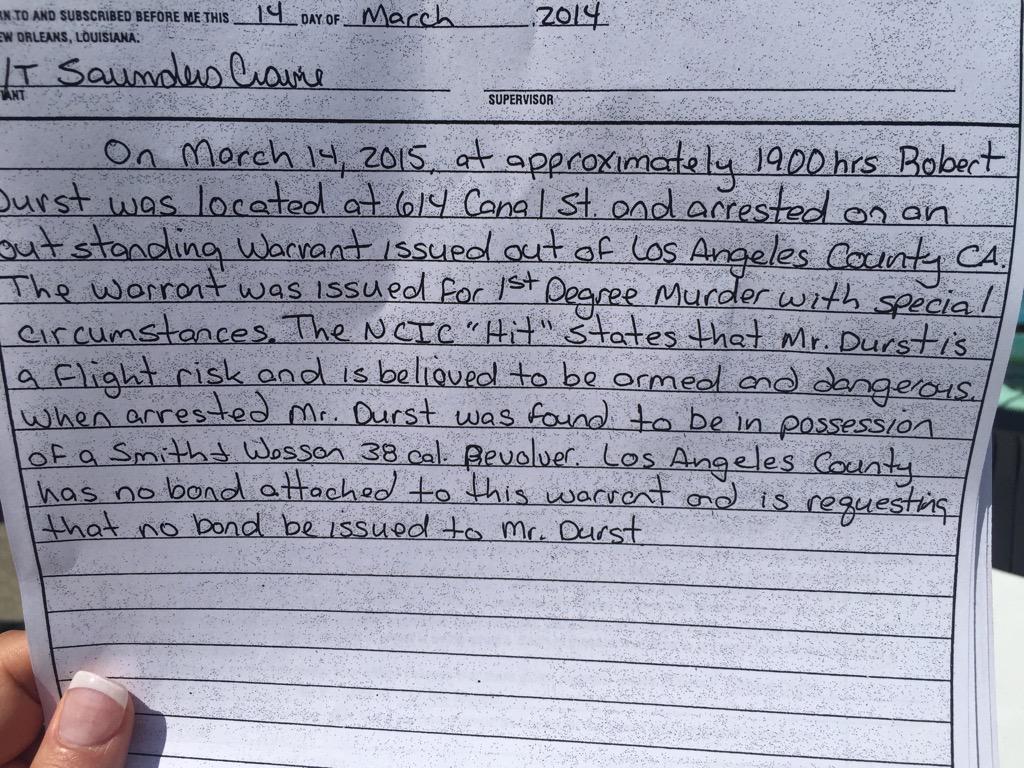 N TO AND SUBSCRIBED BEFORE ME THIS 14 DAY OF March , 2014
EW ORLEANS, LOUISIANA.
LT Saunders Craine
ANT SUPERVISOR
On March 14, 2015, at approximately 1900 hrs Robert
Durst was located at 614 Canal St. and arrested on an
outstanding Warrant issued out of Los Angeles County CA.
The warrant was issued for 1st Degree Murder with special
circumstances. The NCIC "Hit" states that Mr. Durst is
a flight risk and is believed to be armed and dangerous.
When arrested Mr. Durst was found to be in possession
of a Smith & Wesson 38 cal. Revolver. Los Angeles County
has no bond attached to this warrent and is requesting
that no bond be issued to Mr. Durst